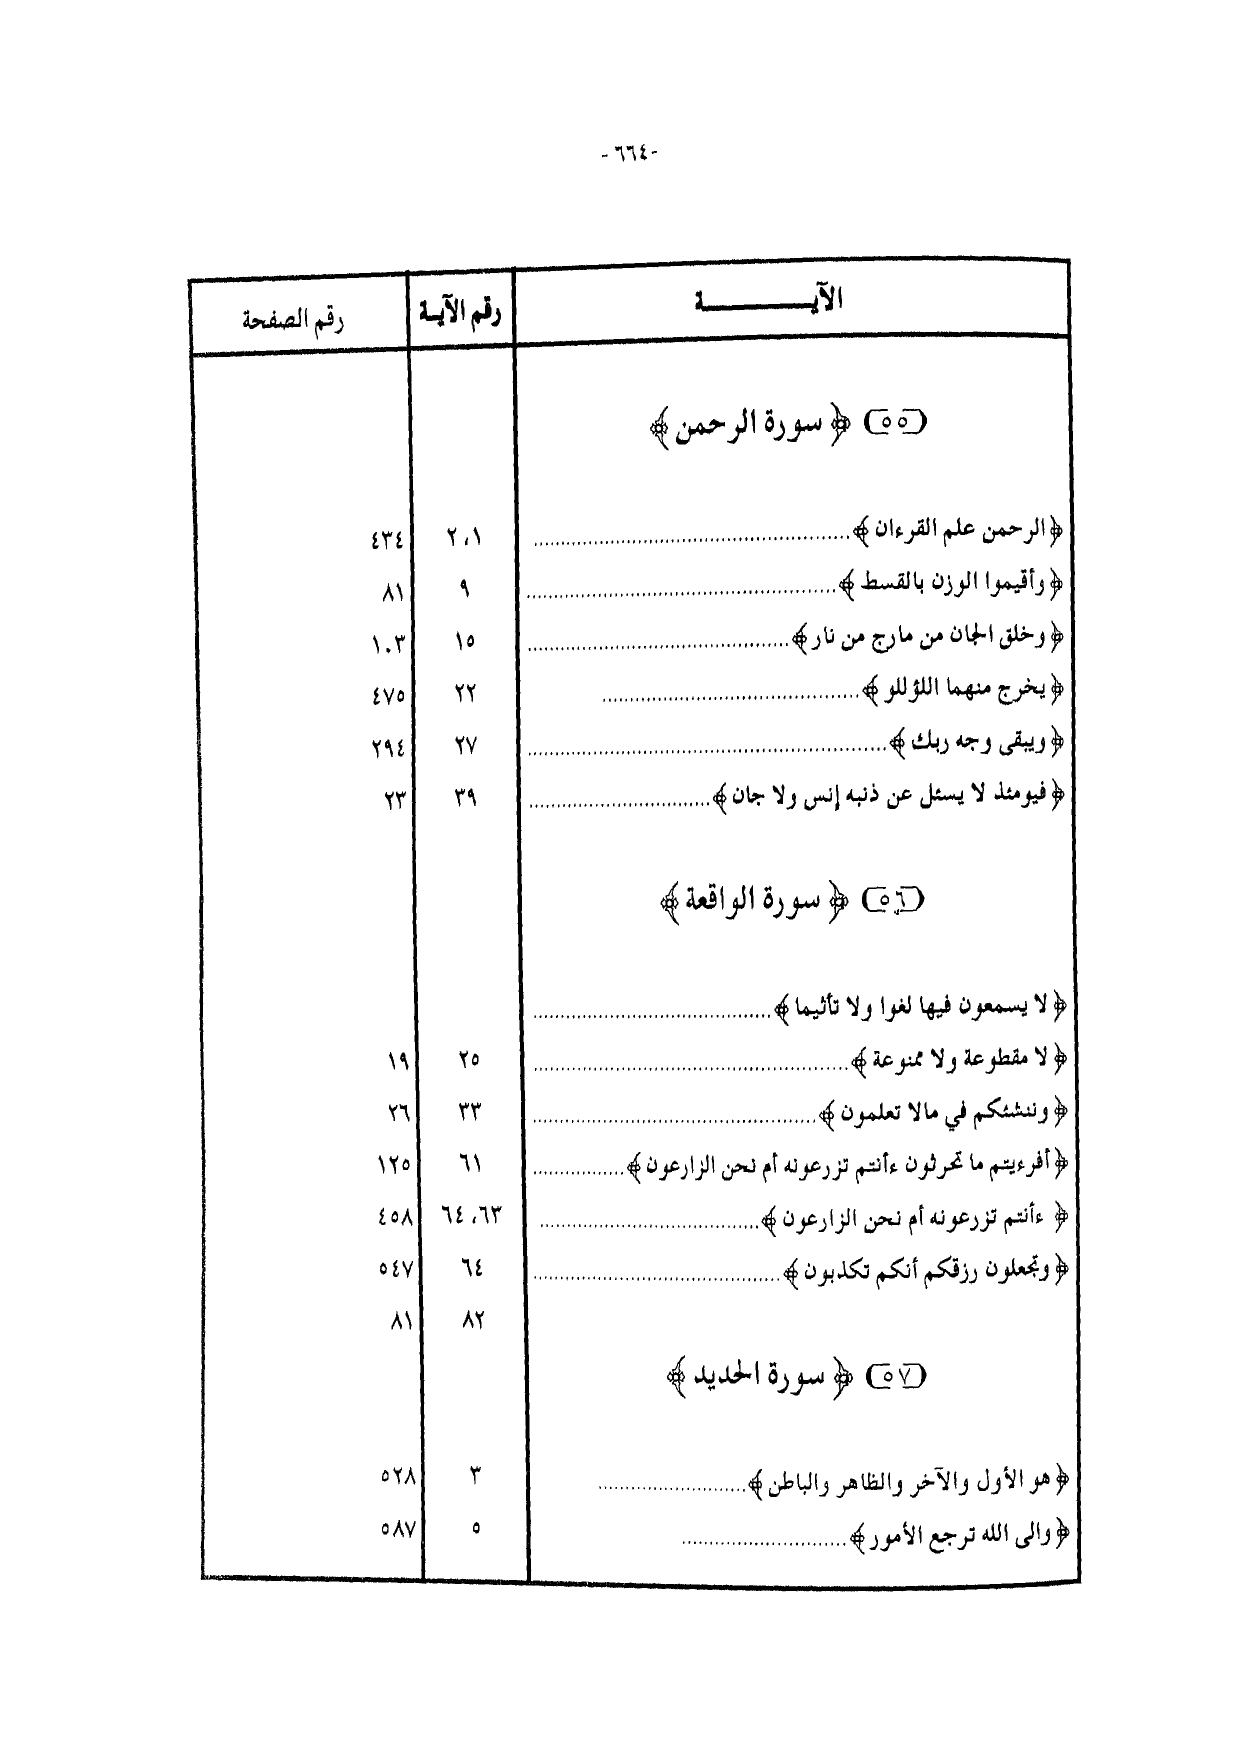 -٦٦٤-
الآيـــــة رقم الآية رقم الصفحة
(٥٥) ﴿ سورة الرحمن ﴾
﴿ الرحمن علم القرءان ﴾ ........ ٢،١ ٤٣٤
﴿ وأقيموا الوزن بالقسط ﴾ ........ ٩ ٨١
﴿ وخلق الجان من مارج من نار ﴾ ........ ١٥ ١٠٣
﴿ يخرج منهما اللؤللو ﴾ ........ ٢٢ ٤٧٥
﴿ ويبقى وجه ربك ﴾ ........ ٢٧ ٢٩٤
﴿ فيومئذ لا يسئل عن ذنبه إنس ولا جان ﴾ ........ ٣٩ ٢٣
(٥٦) ﴿ سورة الواقعة ﴾
﴿ لا يسمعون فيها لغوا ولا تأثيما ﴾ ........
﴿ لا مقطوعة ولا ممنوعة ﴾ ........ ٢٥ ١٩
﴿ وننشئكم في مالا تعلمون ﴾ ........ ٣٣ ٢٦
﴿ أفرءيتم ما تحرثون ءأنتم تزرعونه أم نحن الزارعون ﴾ ........ ٦١ ١٢٥
﴿ ءأنتم تزرعونه أم نحن الزارعون ﴾ ........ ٦٣، ٦٤ ٤٥٨
﴿ وتجعلون رزقكم أنكم تكذبون ﴾ ........ ٦٤ ٥٤٧
٨٢ ٨١
(٥٧) ﴿ سورة الحديد ﴾
﴿ هو الأول والآخر والظاهر والباطن ﴾ ........ ٣ ٥٢٨
﴿ والى الله ترجع الأمور ﴾ ........ ٥ ٥٨٧